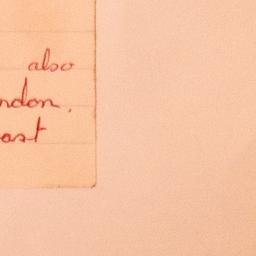 also
ndon.
ast